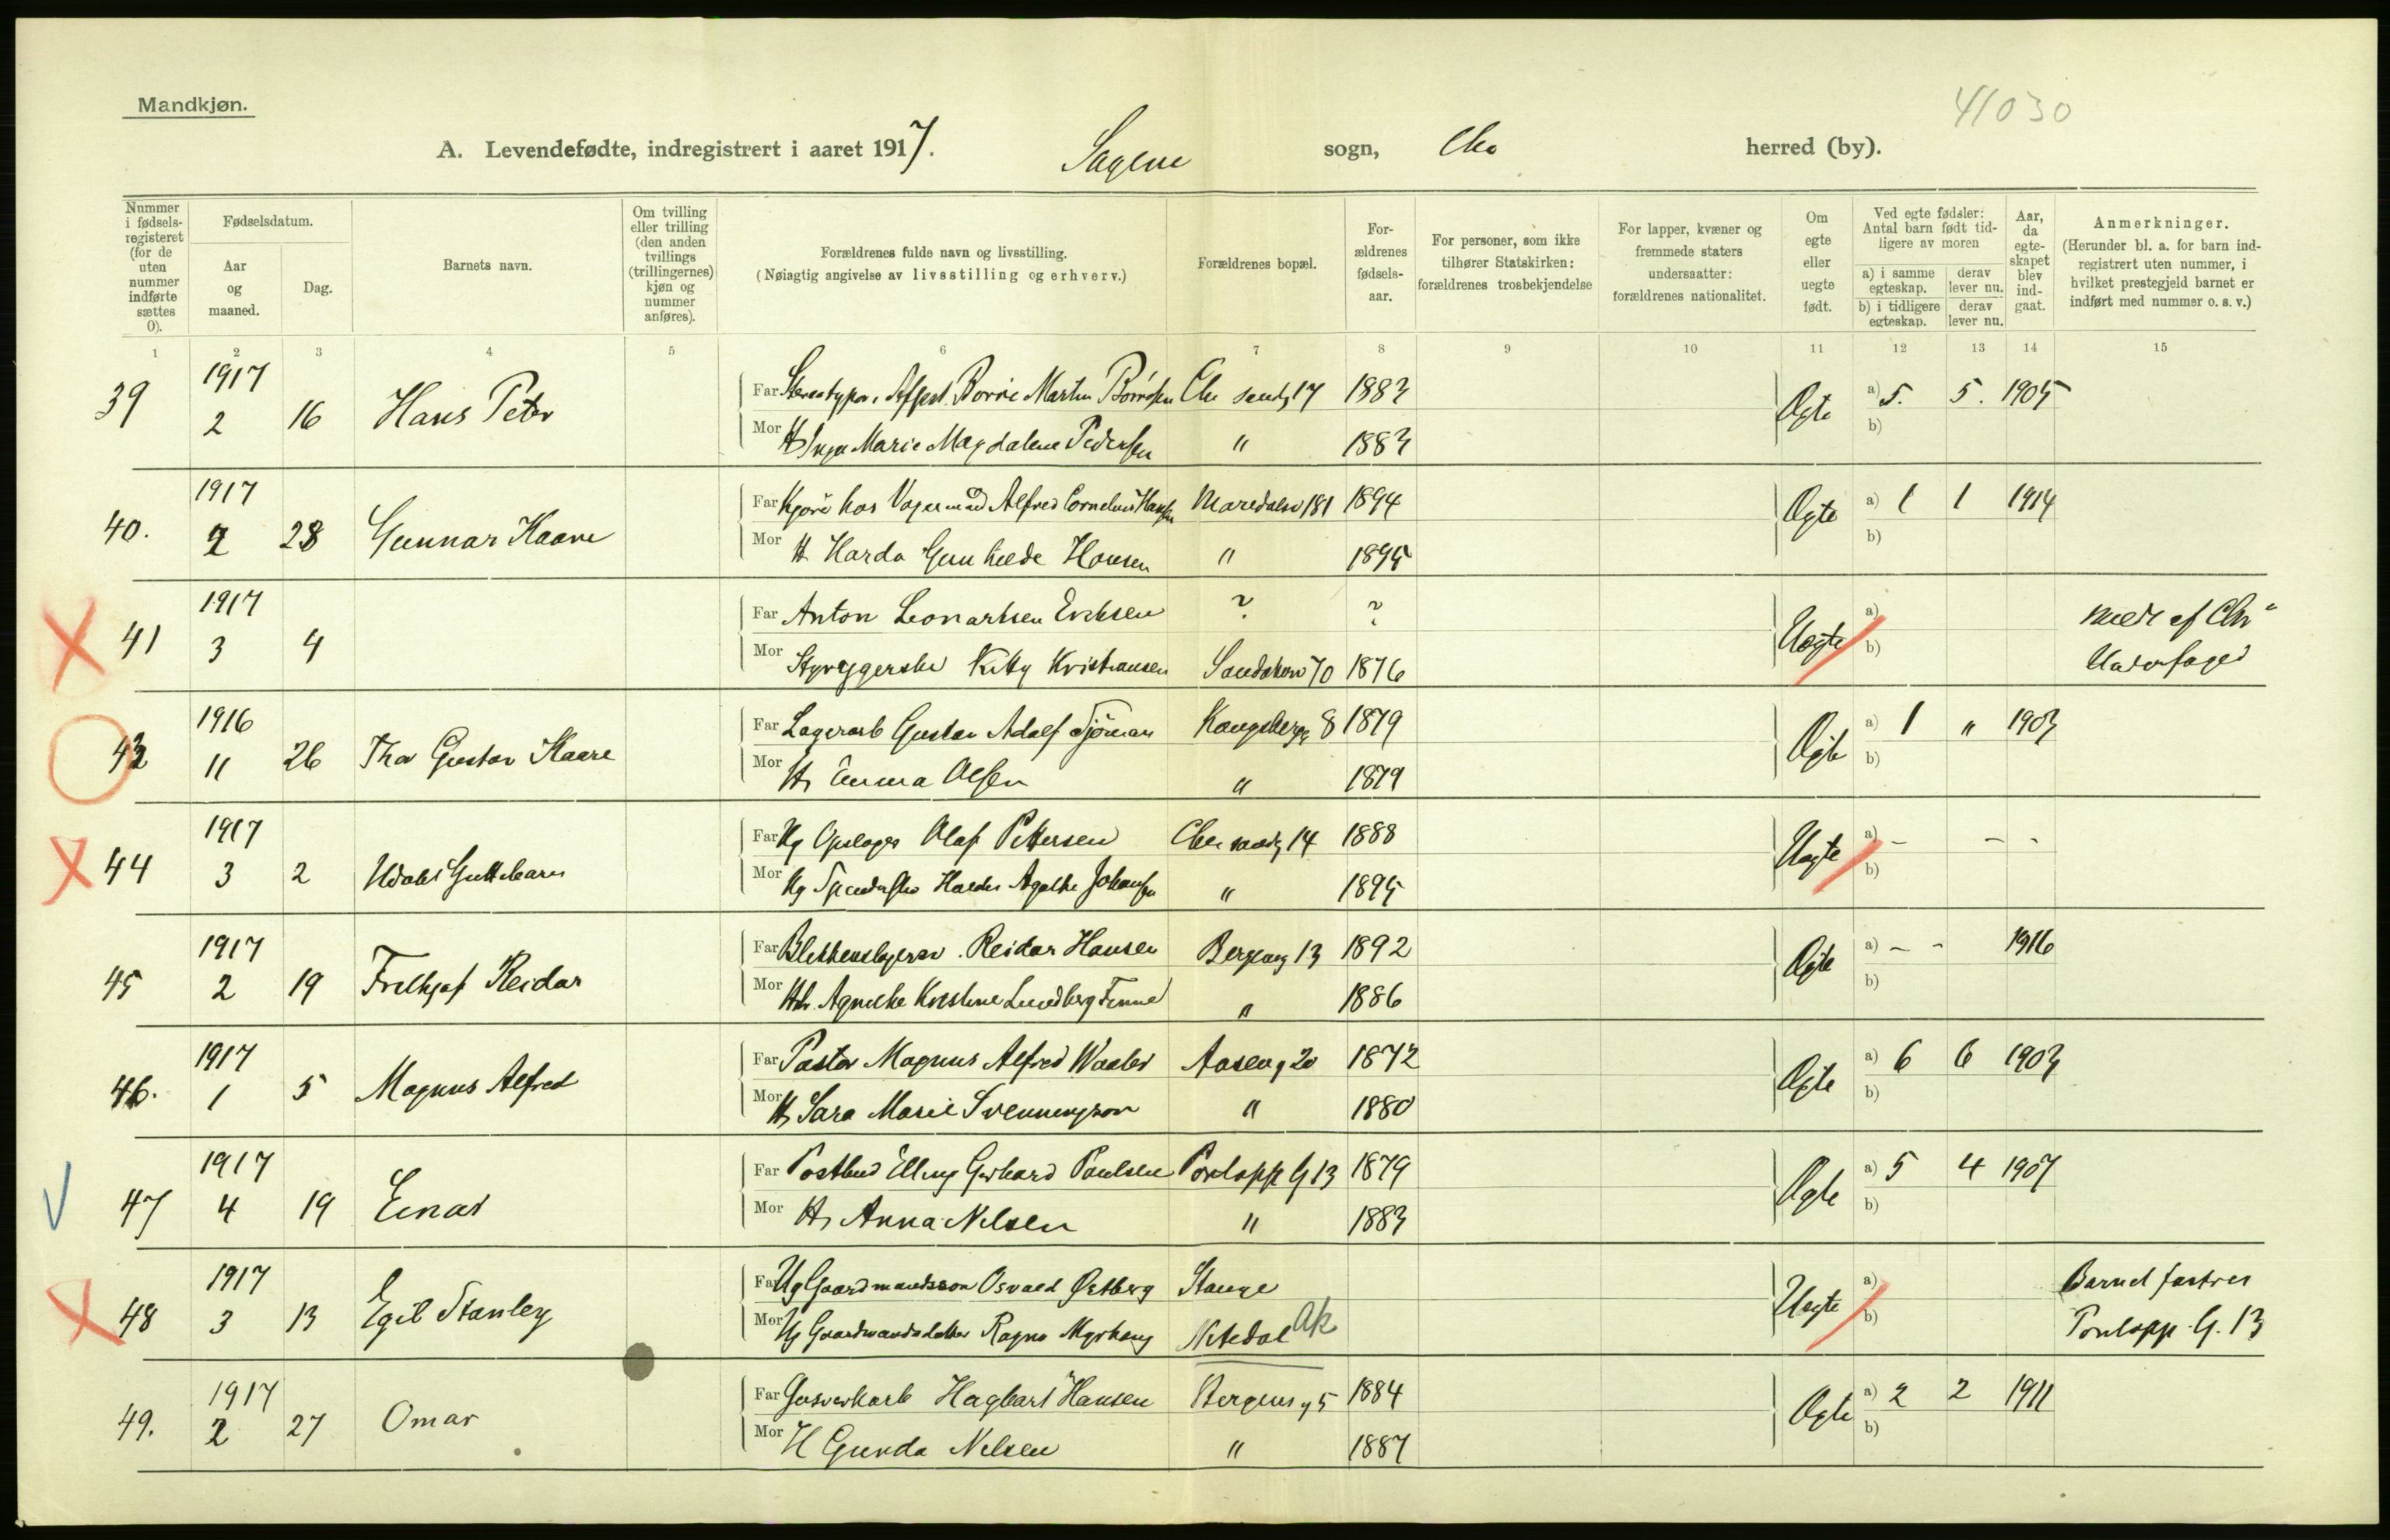 Mandkjøn.
41030
A. Levendefødte, indregistrert i aaret 1917. Sagene sogn, Chra herred (by).
Nummer i fødselsregisteret (for de uten nummer indførte sættes 0).
Fødselsdatum.
Aar og maaned.
Dag.
Barnets navn.
Om tvilling eller trilling (den anden tvillings (trillingernes) kjøn og nummer anføres).
Forældrenes fulde navn og livsstilling.
(Nøiagtig angivelse av livsstilling og erhverv.)
Forældrenes bopæl.
Forældrenes fødselsaar.
For personer, som ikke tilhører Statskirken: forældrenes trosbekjendelse
For lapper, kvæner og fremmede staters undersaatter: forældrenes nationalitet.
Om egte eller uegte født.
Ved egte fødsler: Antal barn født tidligere av moren
a) i samme egteskap.
derav lever nu.
b) i tidligere egteskap.
derav lever nu.
Aar, da egteskapet blev indgaat.
Anmerkninger.
(Herunder bl. a. for barn indregistrert uten nummer, i hvilket prestegjeld barnet er indført med nummer o. s. v.)
1 2 3 4 5 6 7 8 9 10 11 12 13 14 15
39 1917 2 16 Hans Peter
Far Martin 17 1883 Egte a) 5. 5. 1905
Mor H Inga Marie Magdalene Pedersen " 1883 b)
40. 1917 2 28 Gunnar Kaare
Far Kjørek hos Alfred Cornelius Hansen Maridalsv 181 1894 Egte a) 1 1 1914
Mor H Harda Gunhilde Hansen " 1895 b)
41 1917 3 4
Far Anton Leonartsen Eriksen ? ? Uegte a) meldt af Chra
Mor Strygerske Kitty Kristiansen 70 1876 b) Underfoged
43 1916 11 26 Thor Gustav Kaare
Far Lagerarb Gustav Adolf Sjöman Kongsbergg 8 1879 Egte a) 1 " 1903
Mor H Emma Olsen " 1879 b)
44 1917 3 2 Udøbt Guttebarn
Far Ug Opslager Olaf Pettersen 14 1888 Uegte a) - - -
Mor Ug Agathe Johansen " 1895 b)
45 1917 2 19 Fridtjof Reidar
Far Blikkenslagersv. Reidar Hansen Bergensg 13 1892 Egte a) - - 1916
Mor Kristine Lundberg " 1886 b)
46. 1917 1 5 Magnus Alfred
Far Pastor Magnus Alfred Waaler Aaseng 20 1872 Egte a) 6 6 1903
Mor H Sara Marie Svenningson " 1880 b)
47 1917 4 19 Einar
Far Postbud Elling Gerhard Paulsen Torshapp G 13 1879 Egte a) 5 4 1907
Mor H Anna Nilsen " 1883 b)
48 1917 3 13 Egil Stanley
Far Ug Gaardmandssøn Osvald Østberg Stange Uegte a) Barnet fostres
Mor Ug Gaardmandsdatter Ragna Myrhaug Nitedal Ak b) G. 13
49. 1917 2 27 Omar
Far Gasverkarb Hagbart Hansen Bergensg 5 1884 Egte a) 2 2 1911
Mor H Gunda Nilsen " 1887 b)